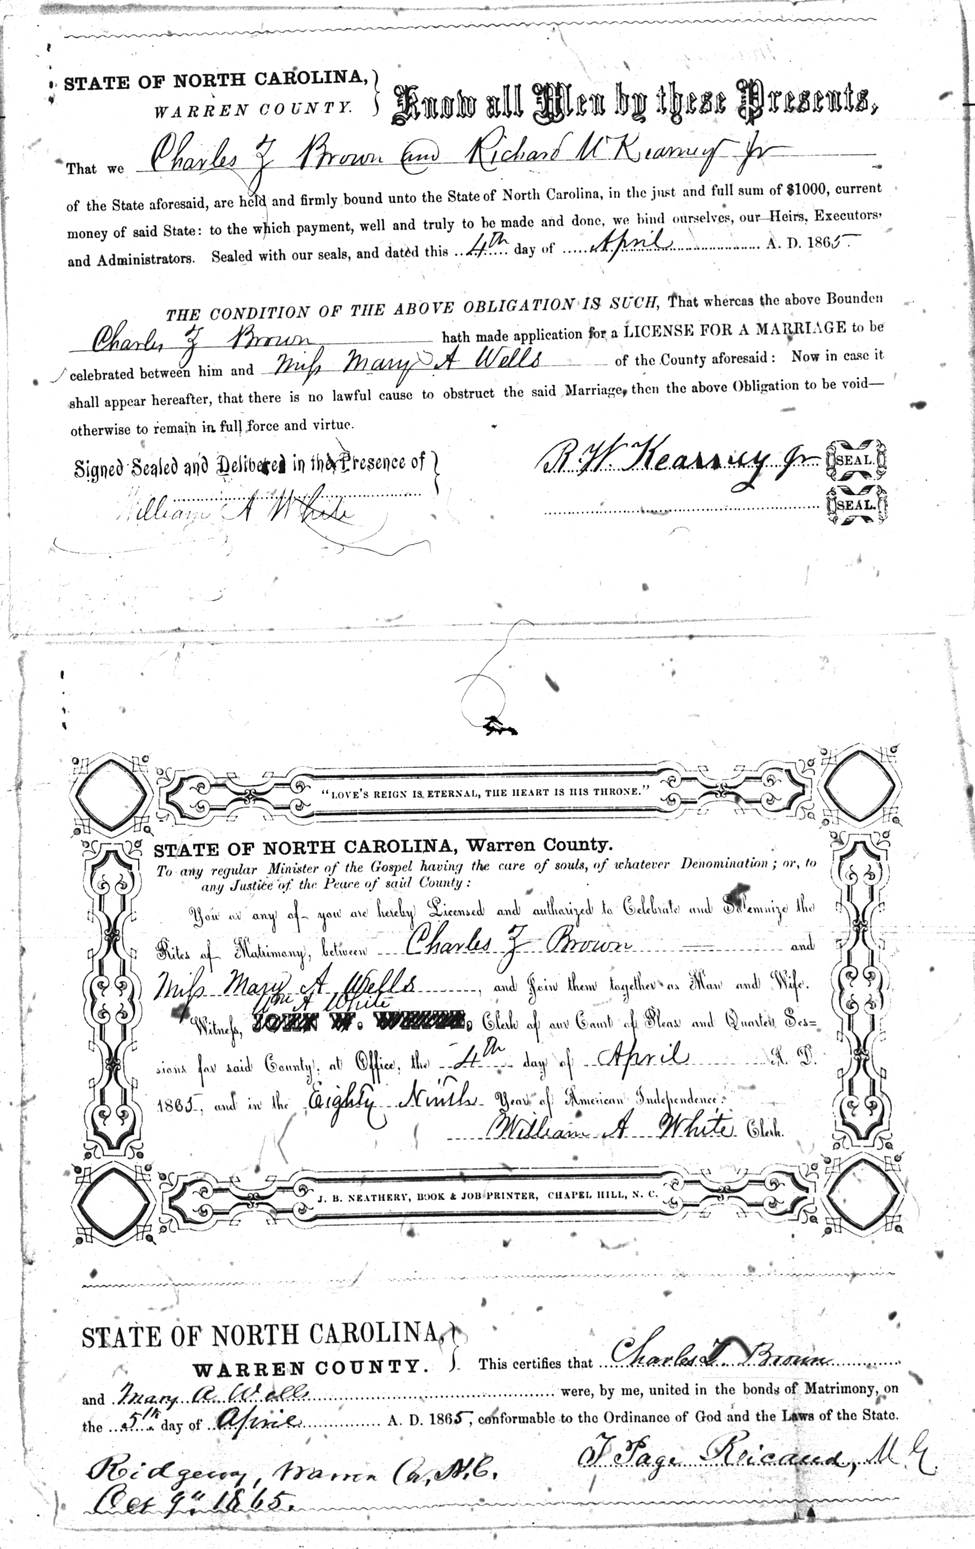 STATE OF NORTH CAROLINA,
WARREN COUNTY.
Know all Men by these Presents,
That we Charles Z Brown and Richard W Kearney Jr
of the State aforesaid, are held and firmly bound unto the State of North Carolina, in the just and full sum of $1000, current
money of said State: to the which payment, well and truly to be made and done, we bind ourselves, our Heirs, Executors,
and Administrators. Sealed with our seals, and dated this 4th day of April A. D. 1865.
THE CONDITION OF THE ABOVE OBLIGATION IS SUCH, That whereas the above Bounden
Charles Z Brown hath made application for a LICENSE FOR A MARRIAGE to be
celebrated between him and Miss Mary A Wells of the County aforesaid: Now in case it
shall appear hereafter, that there is no lawful cause to obstruct the said Marriage, then the above Obligation to be void—
otherwise to remain in full force and virtue.
Signed Sealed and Delibered in the Presence of
R. W. Kearney Jr SEAL.
William A White
SEAL.
"LOVE'S REIGN IS ETERNAL, THE HEART IS HIS THRONE."
STATE OF NORTH CAROLINA, Warren County.
To any regular Minister of the Gospel having the care of souls, of whatever Denomination; or, to
any Justice of the Peace of said County:
You or any of you are hereby Licensed and authorized to Celebrate and Solemnize the
Rites of Matrimony, between Charles Z Brown and
Miss Mary A Wells, and Join them together as Man and Wife.
Wm A White
Witness, Clerk of our Court of Pleas and Quarter Ses=
sions for said County, at Office, the 4th day of April A. D.
1865, and in the Eighty Ninth Year of American Independence.
William A White Clerk.
J. B. NEATHERY, BOOK & JOB PRINTER, CHAPEL HILL, N. C.
STATE OF NORTH CAROLINA,
WARREN COUNTY.
This certifies that Charles Z. Brown
and Mary A. Wells were, by me, united in the bonds of Matrimony, on
the 5th day of April A. D. 1865, conformable to the Ordinance of God and the Laws of the State.
T Page Ricaud, M G.
Ridgeway, Warren Co, N.C.
Oct 9th 1865.